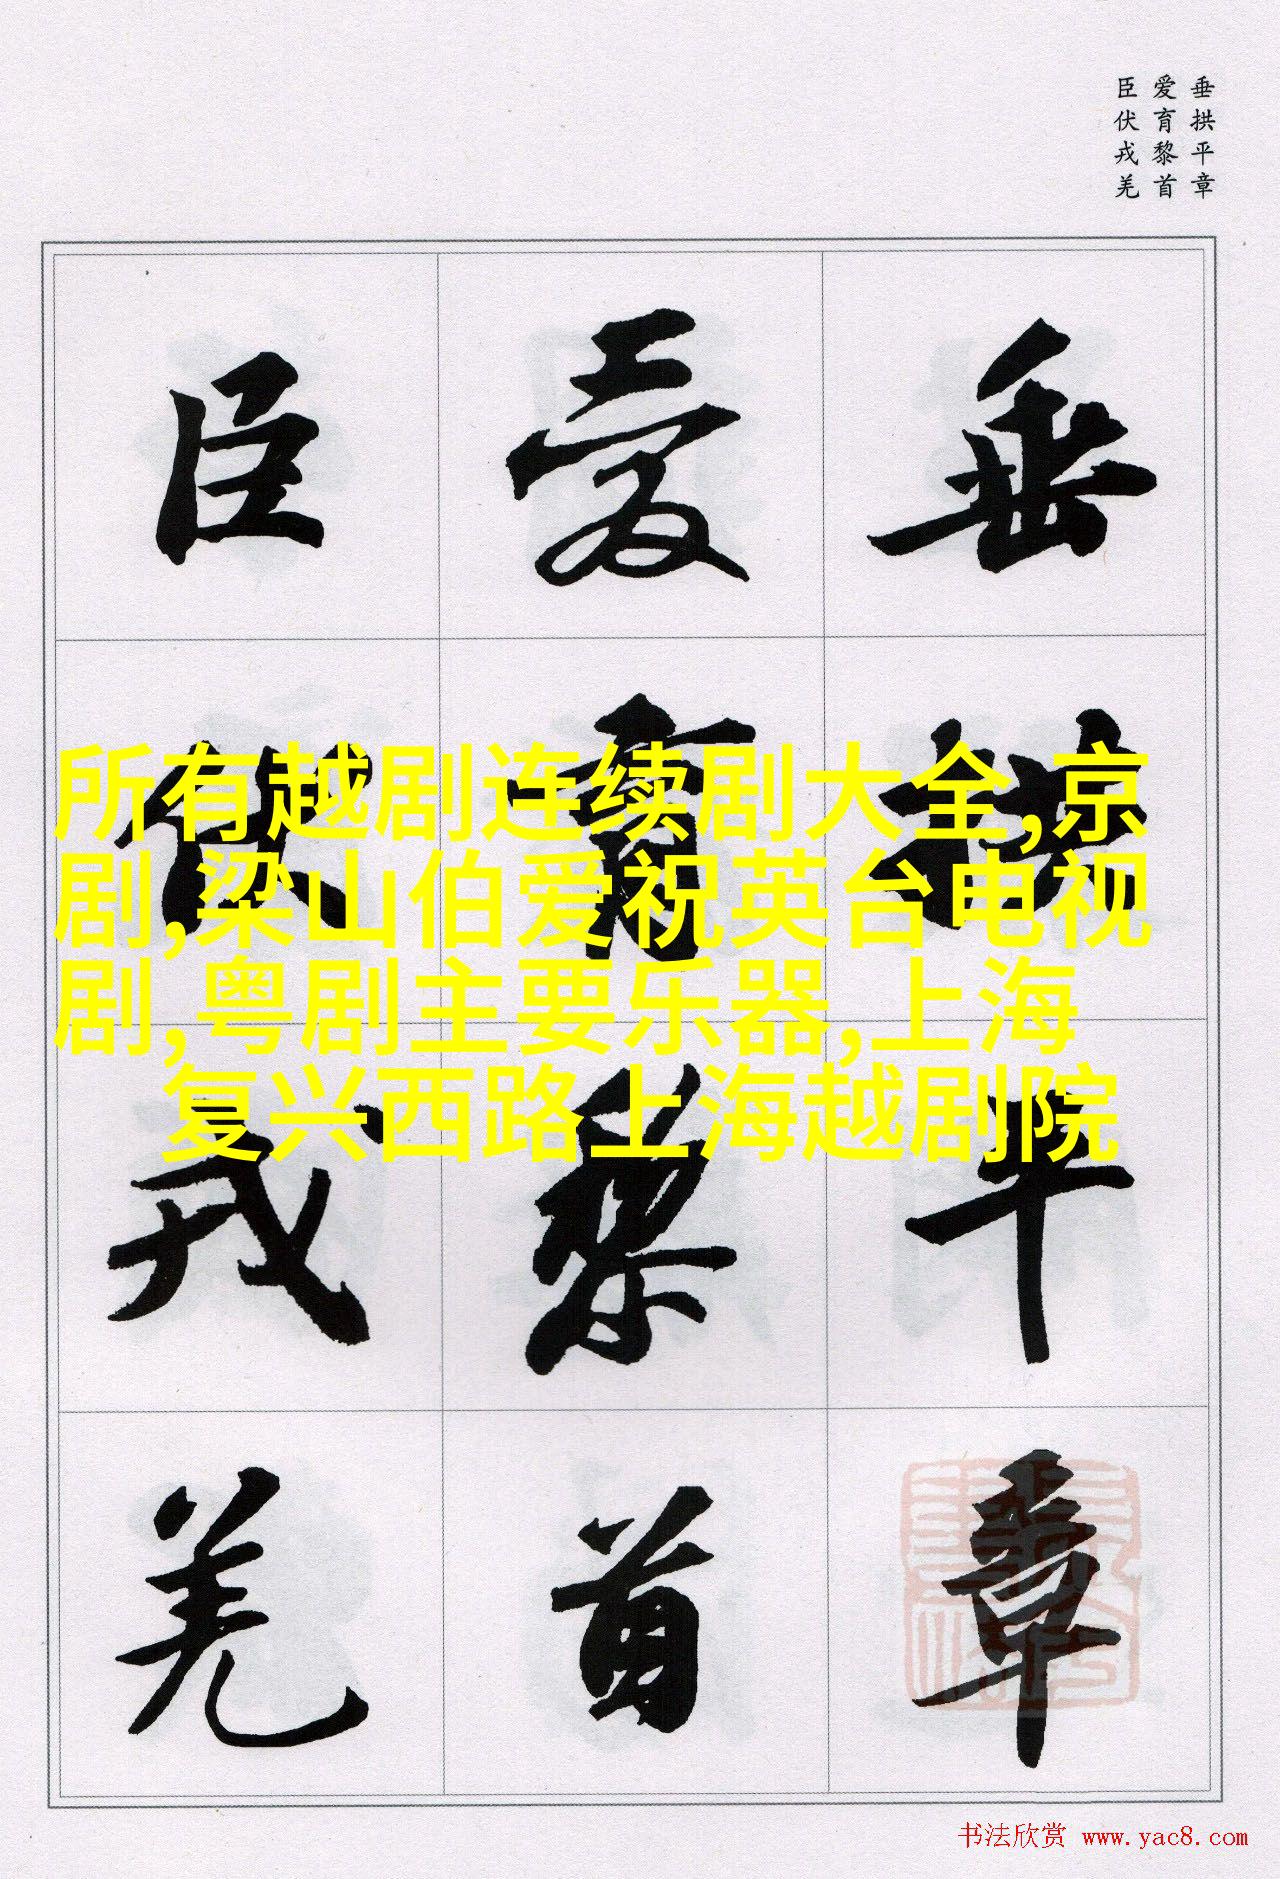 垂拱平章
爱育黎首
臣伏戎羌
垂拱平章
爱育黎首
臣伏戎羌
所有越剧连续剧大全,京
剧,梁山伯爱祝英台电视
剧,粤剧主要乐器,上海
复兴西路上海越剧院
书法欣赏 www.yac8.com